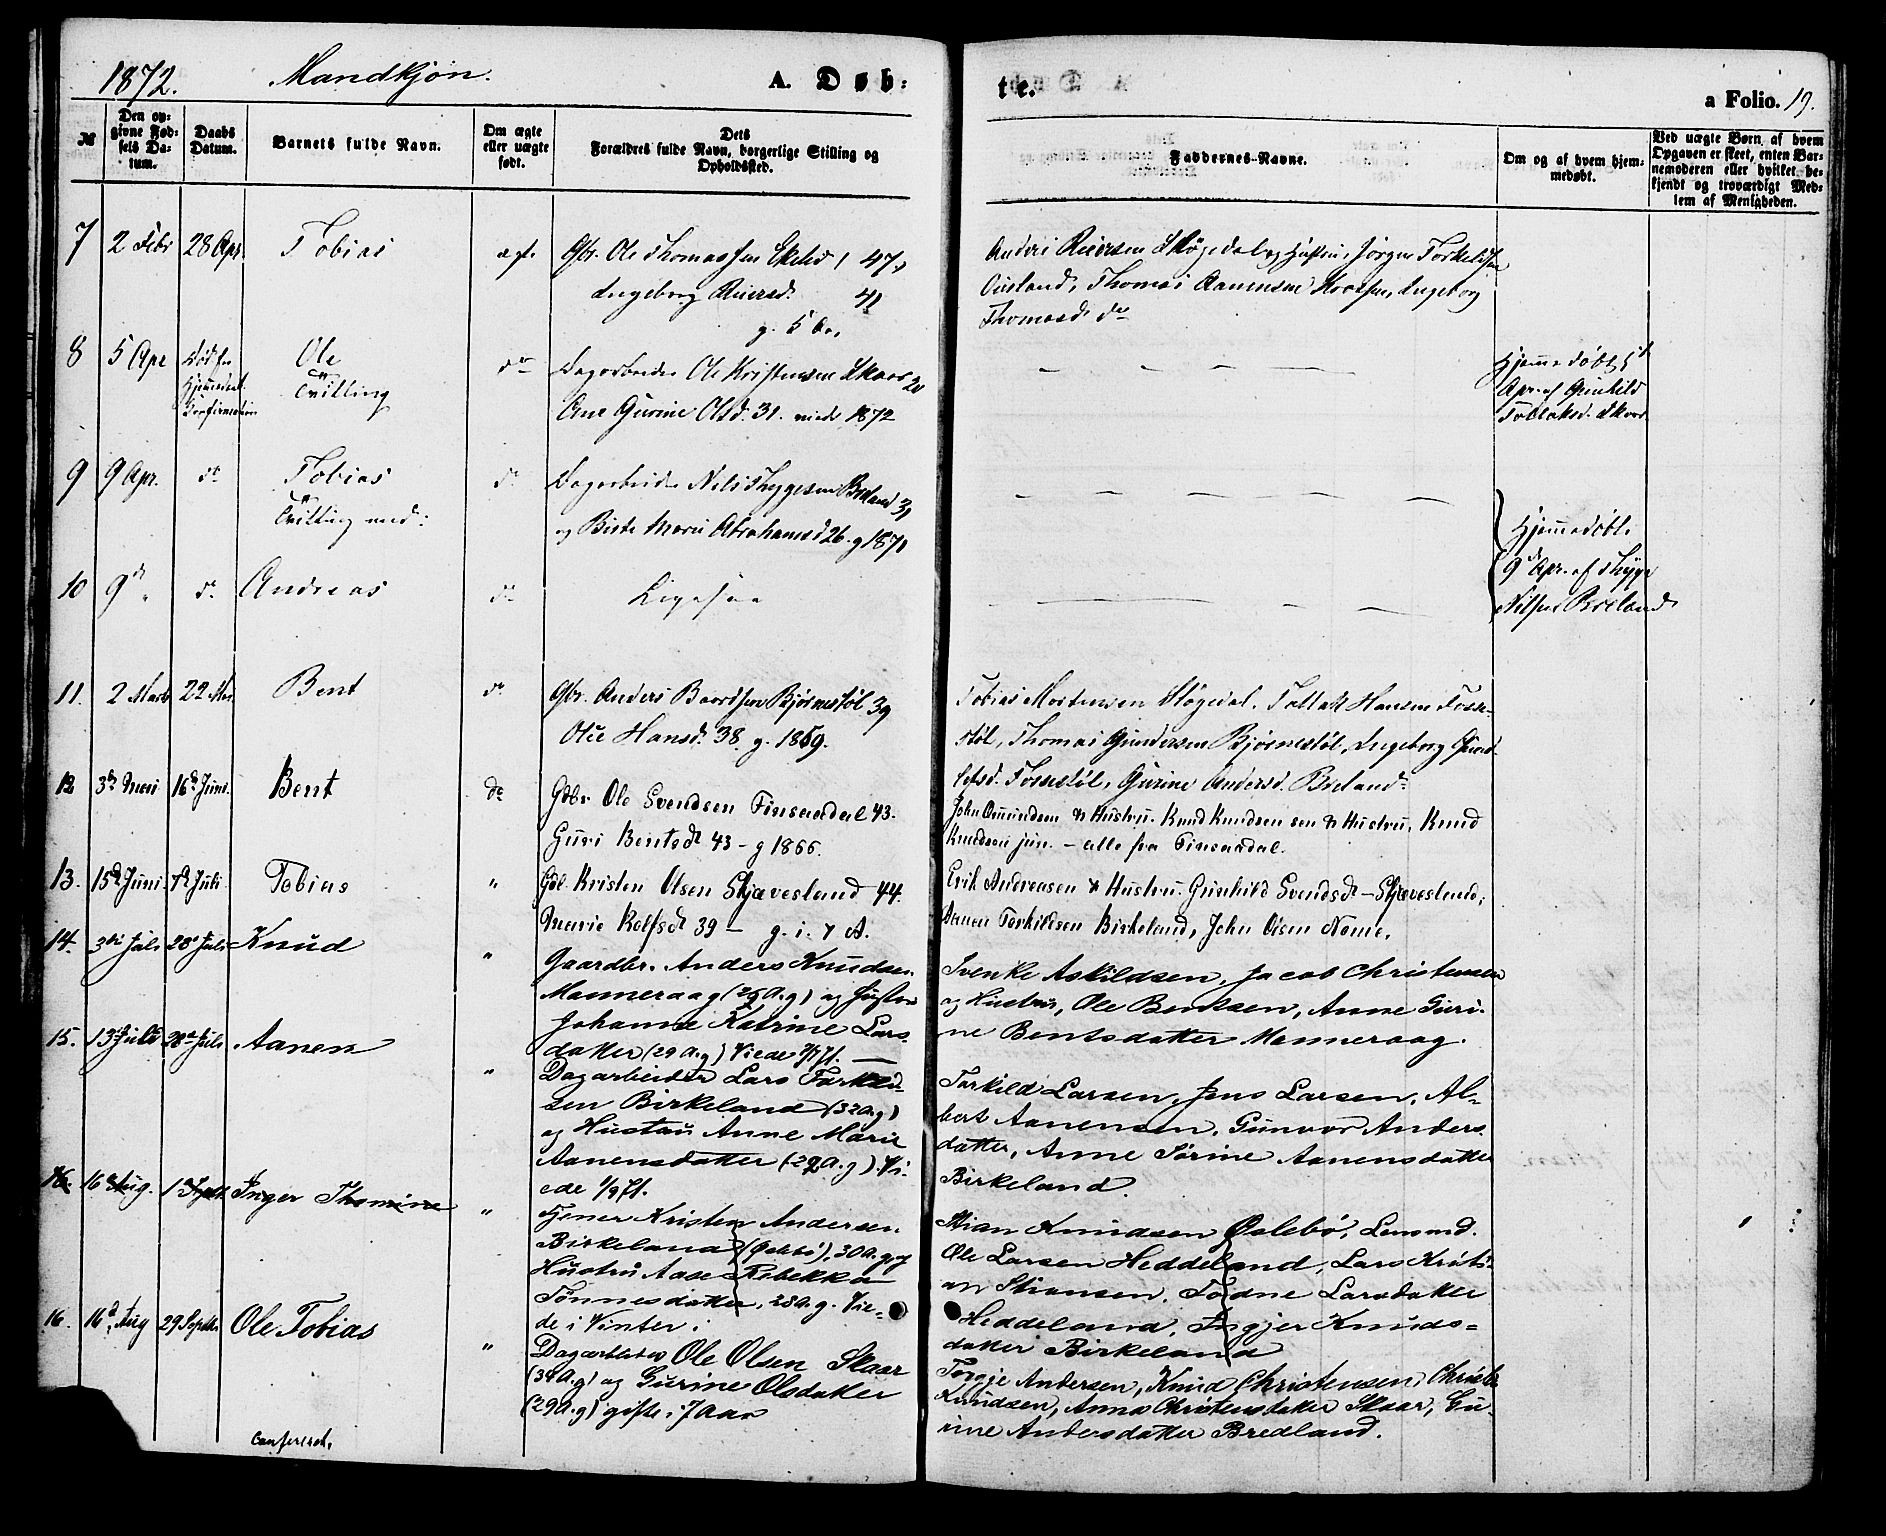 1872.
Mandkjøn.
A. Døb:
te.
a Folio. 19.
№
Den op-
givne Fød-
sels Da-
tum.
Daabs
Datum.
Barnets fulde Navn.
Om ægte
eller uægte
født.
Dets
Forældres fulde Navn, borgerlige Stilling og
Opholdssted.
Faddernes-Navne.
Om og af hvem hjem-
medøbt.
Ved uægte Børn, af hvem
Opgaven er skeet, enten Bar-
nemoderen eller hvilket be-
kjendt og troværdigt Med-
lem af Menigheden.
7 2 Febr 28 Apr. Tobias
Gbr. Ole Thomassen 47
Ingeborg Reiersd. 41
g. 5 
Anders Reiersen Høgedal og Hustru, Jørgen Torkelsen
Ousland, Thomas Aanensen Ingeborg
Thomasd. do
8 5 Apr Død før
Hjemmedaab.
Ole
Tvilling
do Dagarbeider Ole Kristensen Skaar 20
Ane Gurine Olsd. 31. viede 1872
Hjemmedøbt 5t
Apr. af Gunhild
Tollaksd. Skaar
9 9 Apr. do Tobias
Tvilling med:
do Dagarbeider Nils Thygesen Breland 31
og Birte Marie Abrahamsd 26. g 1871
Hjemmedøbt
9d Apr. af Thyge
Nilsen Breland
10 9d " do Andreas do Ligesaa
11. 2 Marts 22 Mai Bent do
Gbr. Anders Baardsen Bjørnestøl 39
Olie Hansd. 38. g. 1869.
Tobias Mortensen Høgedal, Tollak Hansen Fosse-
støl, Thomas Gundersen Bjørnestøl, Ingeborg Gund-
Fossestøl, Gurine Andersd. Breland
12 3de Mai 16de Juni. Bent do
Gdbr Ole Svendsen Finsaadal 43.
Guri Bentsdt 43 - g 1866.
John Omundsen & Hustru. Knud Knudsen sen & Hustru, Knud
Knudsen jun. - alle fra Finsaadal.
13. 15de Juni 7de Juli Tobias "
Gdb. Kristen Olsen Skjævesland 44.
Marie Rolfsdt 39 - g. i. 7 A.
Erik Andreasen & Hustru. Gunhild Svendsdt - Skjævesland,
Aanen Torkildsen Birkeland, John Olsen Nome.
14. 3die Juli 28de Juli Knud "
Gaardbr. Anders Knudsen
Manneraag (25 A.g) og Hustru
Johanne Katrine Lars-
datter (29 A.g) Viede
Svenke Askildsen, Jacob Christensen
og Hustru, Ole Bentsen, Anne Guri-
ne Bentsdatter Manneraag.
15. 13de Juli 28de Juli Aanen "
Dagarbeider Lars Torkild-
sen Birkeland (32 A.g)
og Hustru Anne Marie
Aanensdatter (22 A.g) Vi-
ede 1/9 71.
Torkild Larsen, Jens Larsen, Al-
bert Aanensen, Gunvor Anders-
datter, Anne Sørine Aanensdatter
Birkeland.
16. 16 Aug. 1 Sept Inger Thomine "
Tjener Kristen Andersen
Birkeland (Øslebø), 30 A.g, og
Hustru Aase Rebekka
Tønnesdatter, 23 A.g. Vie-
de i Vinter.
Stian Knudsen Øslebø, Lensmd.
Ole Larsen Heddeland, Lars Kristi-
an Stiansen, Todne Larsdatter
Heddeland, Ingjer Knuds-
datter Birkeland
16. 16d Aug 29 Septbr. Ole Tobias "
Dagarbeider Ole Olsen Skaar
(34 A.g) og Gurine Olsdatter
(29 A.g) gifte i 7 Aar
Torgje Andersen, Knud Christensen, Christen
Knudsen, Anna Christensdatter Skaar, Gu-
rine Andersdatter Bredland.
Confereret.